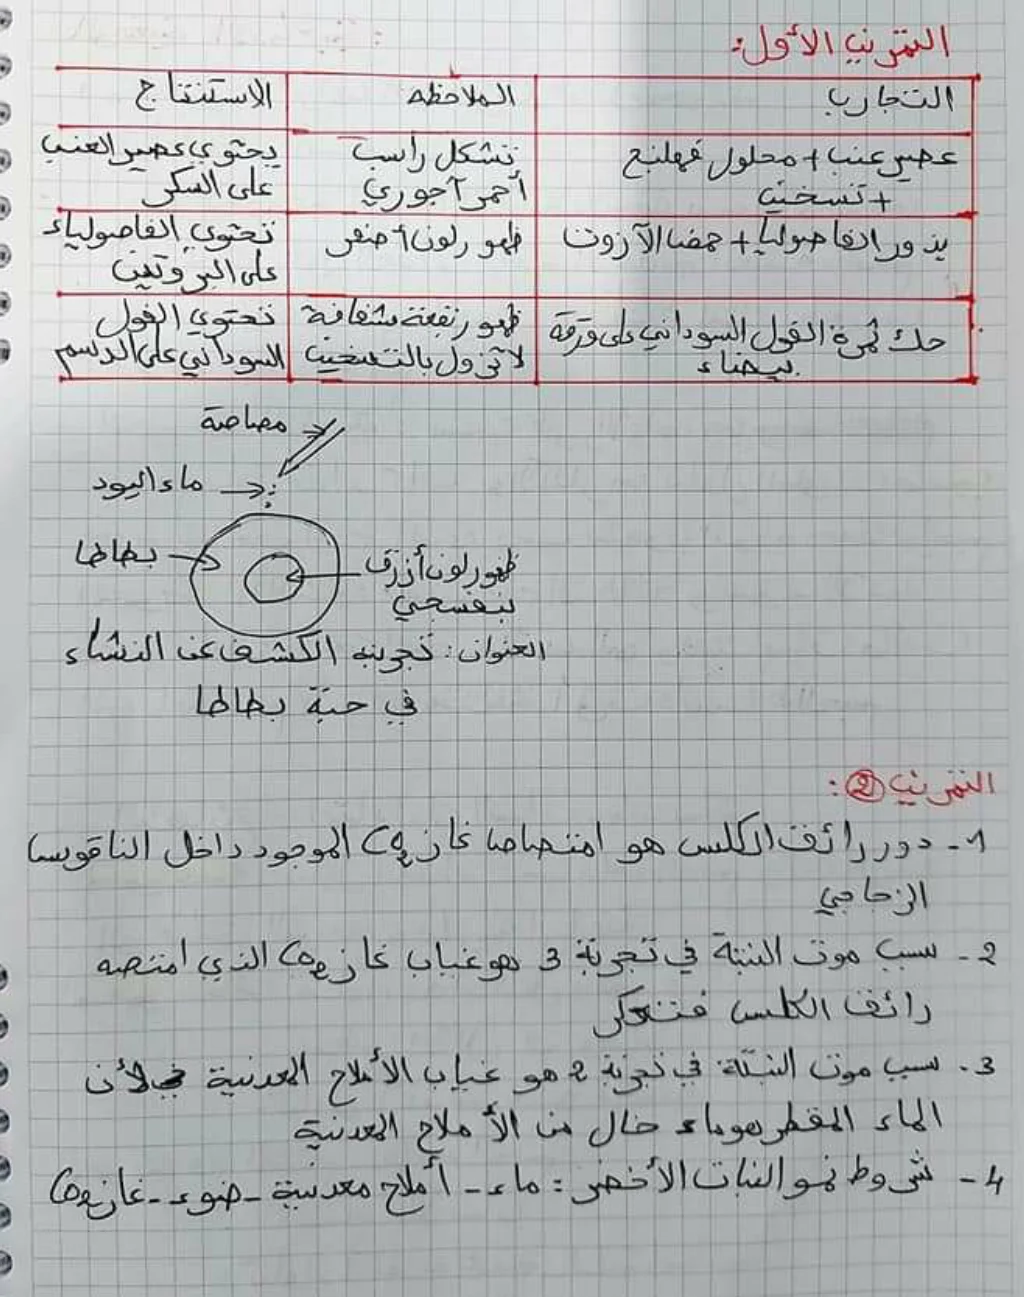 التمرين الأول:
التجارب الملاحظه الاستنتاج
عصير عنب + محلول فهلنج + تسخين
تشكل راسب أحمر آجوري
يحتوي عصير العنب على السكر
بذور الفاصوليا + حمض الآزوت
ظهور لون أصفر
تحتوي الفاصولياء على البروتين
حك ثمرة الفول السوداني على ورقة بيضاء
ظهور بقعة شفافة لا تزول بالتسخين
تحتوي الفول السوداني على الدسم
مصاصة
ماء اليود
بطاطا
ظهور لون أزرق
بنفسجي
العنوان: تجربة الكشف عن النشاء
في حبة بطاطا
التمرين 2:
1- دور رائق الكلس هو امتصاص غاز CO2 الموجود داخل الناقوس
الزجاجي
2- سبب موت النبتة في تجربة 3 هو غياب غاز CO2 الذي امتصه
رائق الكلس فتعكر
3. سبب موت النبتة في تجربة 2 هو غياب الأملاح المعدنية لأن
الماء المقطر هو ماء خال من الأملاح المعدنية
4- شروط نمو النبات الأخضر: ماء - أملاح معدنية - ضوء - غاز CO2